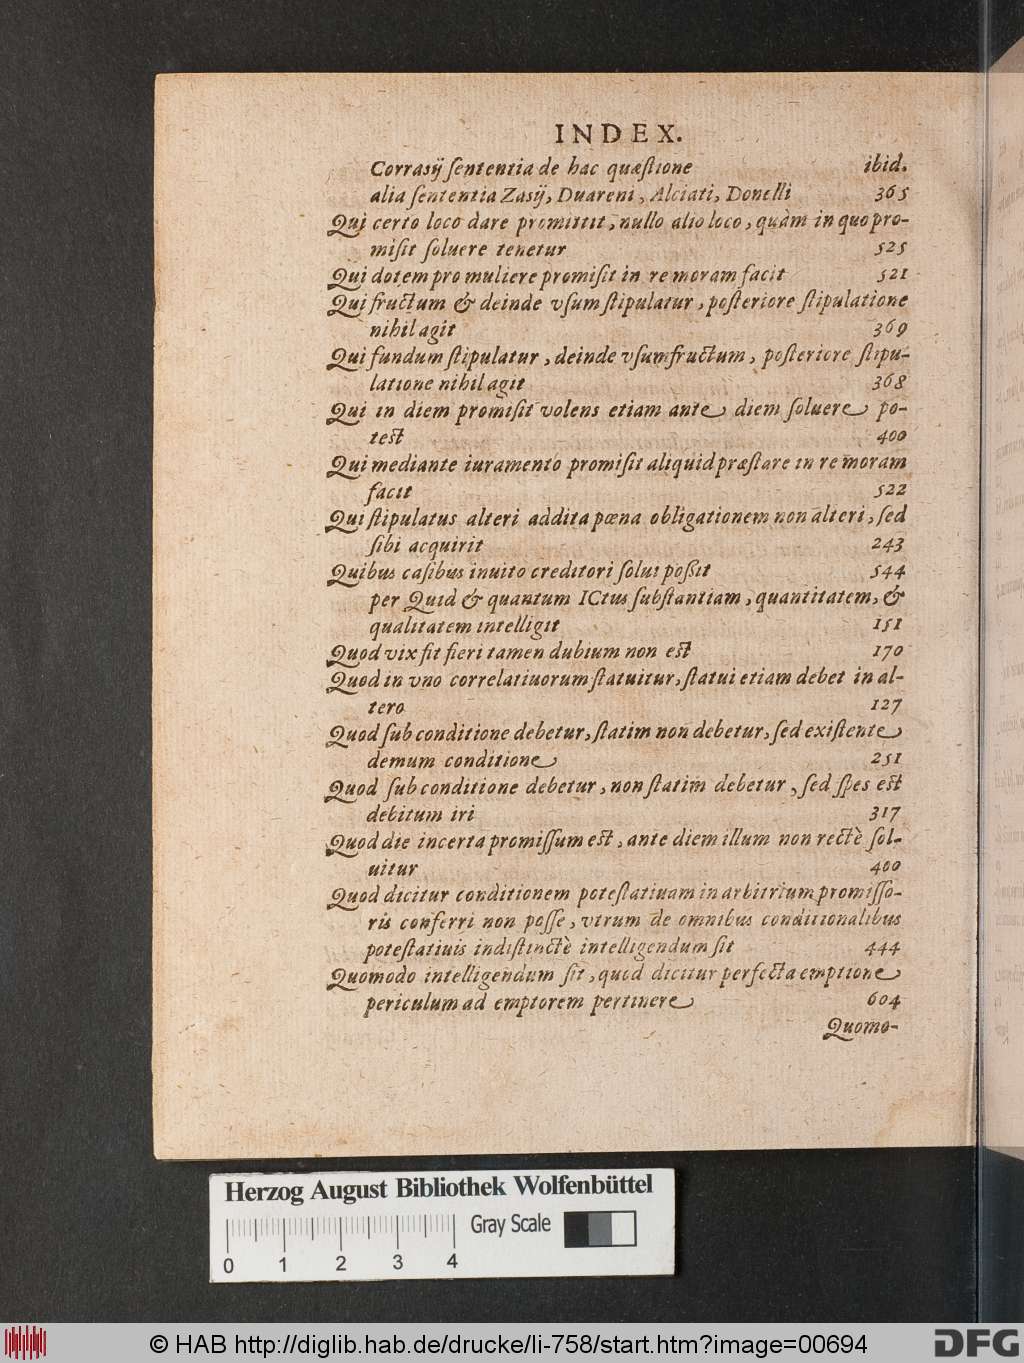 INDEX.
Corrasij ſententia de hac quæſtione ibid.
alia ſententia Zasij, Duareni, Alciati, Donelli 365
Qui certo loco dare promittit, nullo alio loco, quàm in quo pro-
miſit ſoluere tenetur 525
Qui dotem pro muliere promiſit in re moram facit 521
Qui fructum & deinde vſum ſtipulatur, poſteriore ſtipulatione
nihil agit 369
Qui fundum ſtipulatur, deinde vſumfructum, poſteriore ſtipu-
latione nihil agit 368
Qui in diem promiſit volens etiam ante diem ſoluere po-
test 400
Qui mediante iuramento promiſit aliquid præſtare in re moram
facit 522
Qui ſtipulatus alteri addita pœna obligationem non alteri, ſed
ſibi acquirit 243
Quibus caſibus inuito creditori ſolui poßit 544
per Quid & quantum ICtus ſubſtantiam, quantitatem, &
qualitatem intelligit 151
Quod vix fit fieri tamen dubium non est 170
Quod in vno correlatiuorum ſtatuitur, ſtatui etiam debet in al-
tero 127
Quod ſub conditione debetur, ſtatim non debetur, ſed exiſtente
demum conditione 251
Quod ſub conditione debetur, non ſtatim debetur, ſed ſpes est
debitum iri 317
Quod die incerta promiſſum est, ante diem illum non rectè ſol-
uitur 400
Quod dicitur conditionem poteſtatiuam in arbitrium promiſſo-
ris conferri non poſſe, vtrum de omnibus conditionalibus
poteſtatiuis indiſtinctè intelligendum ſit 444
Quomodo intelligendum ſit, quod dicitur perfecta emptione
periculum ad emptorem pertinere 604
Quomo-
Herzog August Bibliothek Wolfenbüttel
Gray Scale
0 1 2 3 4
© HAB http://diglib.hab.de/drucke/li-758/start.htm?image=00694
DFG